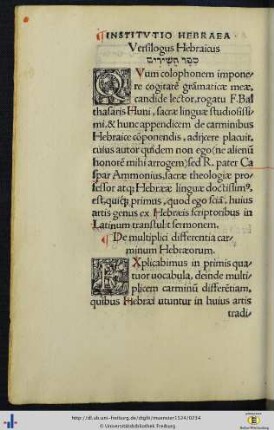 ¶INSTITVTIO HEBRAEA
Versilogus Hebraicus
ספר השירים
QVum colophonem impone
re cogitarē grāmaticæ meæ,
candide lector, rogatu F. Bal
thasaris Huni, sacræ linguæ studiosissi
mi, & hunc appendicem de carminibus
Hebraice cōponendis, adijcere placuit,
cuius autor quidem non ego (ne alienū
honorē mihi arrogem) sed R. pater Ca
spar Ammonius, sacræ theologiæ pro
fessor atq; Hebrææ linguæ doctissim9,
est, quiq; primus, quod ego sciā, huius
artis genus ex Hebræis scriptoribus in
Latinum transtulit sermonem.
¶De multiplici differentia car
minum Hebræorum.
EXplicabimus in primis qua
tuor uocabula, deinde multi
plicem carminū differētiam,
quibus Hebræi utuntur in huius artis
tradi-
http://dl.ub.uni-freiburg.de/diglit/muenster1524/0234
© Universitätsbibliothek Freiburg